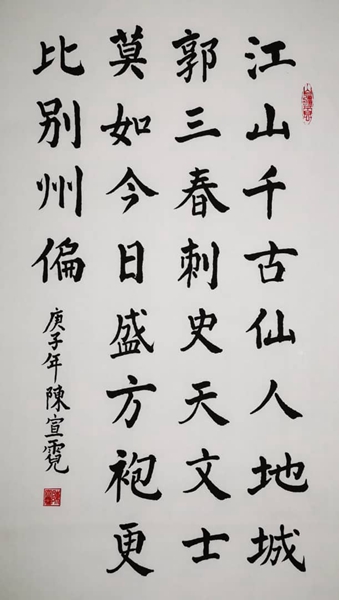 江山千古仙人地城
郭三春刺史天文士
莫如今日盛方袍更
比别州偏
庚子年陳宣霓